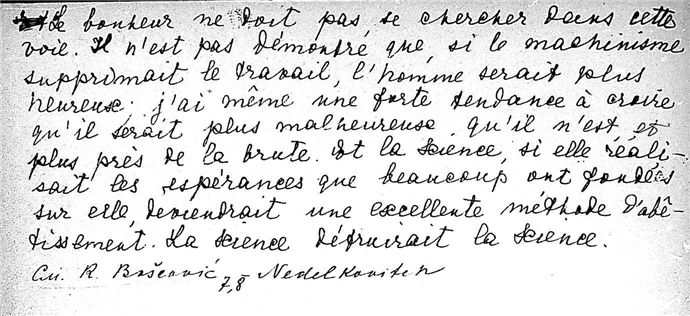 Le bonheur ne doit pas se chercher dans cette
voie. Il n'est pas démontré que, si le machinisme
supprimait le travail, l'homme serait plus
heureuse; j'ai même une forte tendance à croire
qu'il serait plus malheureuse qu'il n'est et
plus près de la brute. Et la science, si elle réali-
sait les espérances que beaucoup ont fondées
sur elle, deviendrait une excellente méthode d'abê-
tissement. La science détruirait la science.
R. Bošcović 7,8 Nedelkovitch